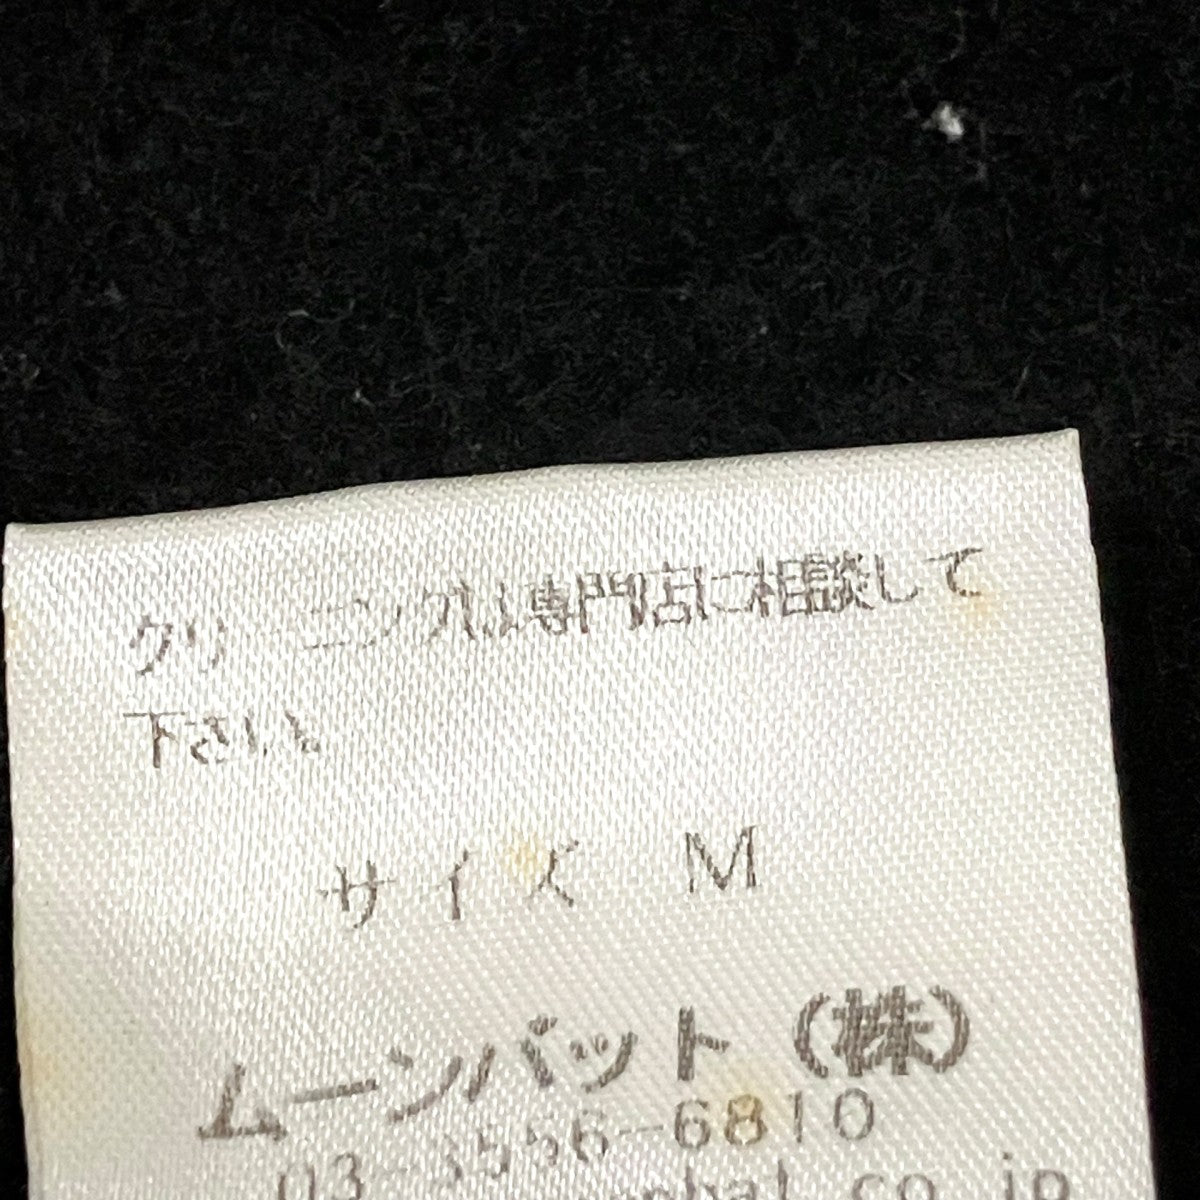 クリーニングは専門店に相談して
下さい
サイズ M
ムーンバット(株)
03-3556-6810
co.jp